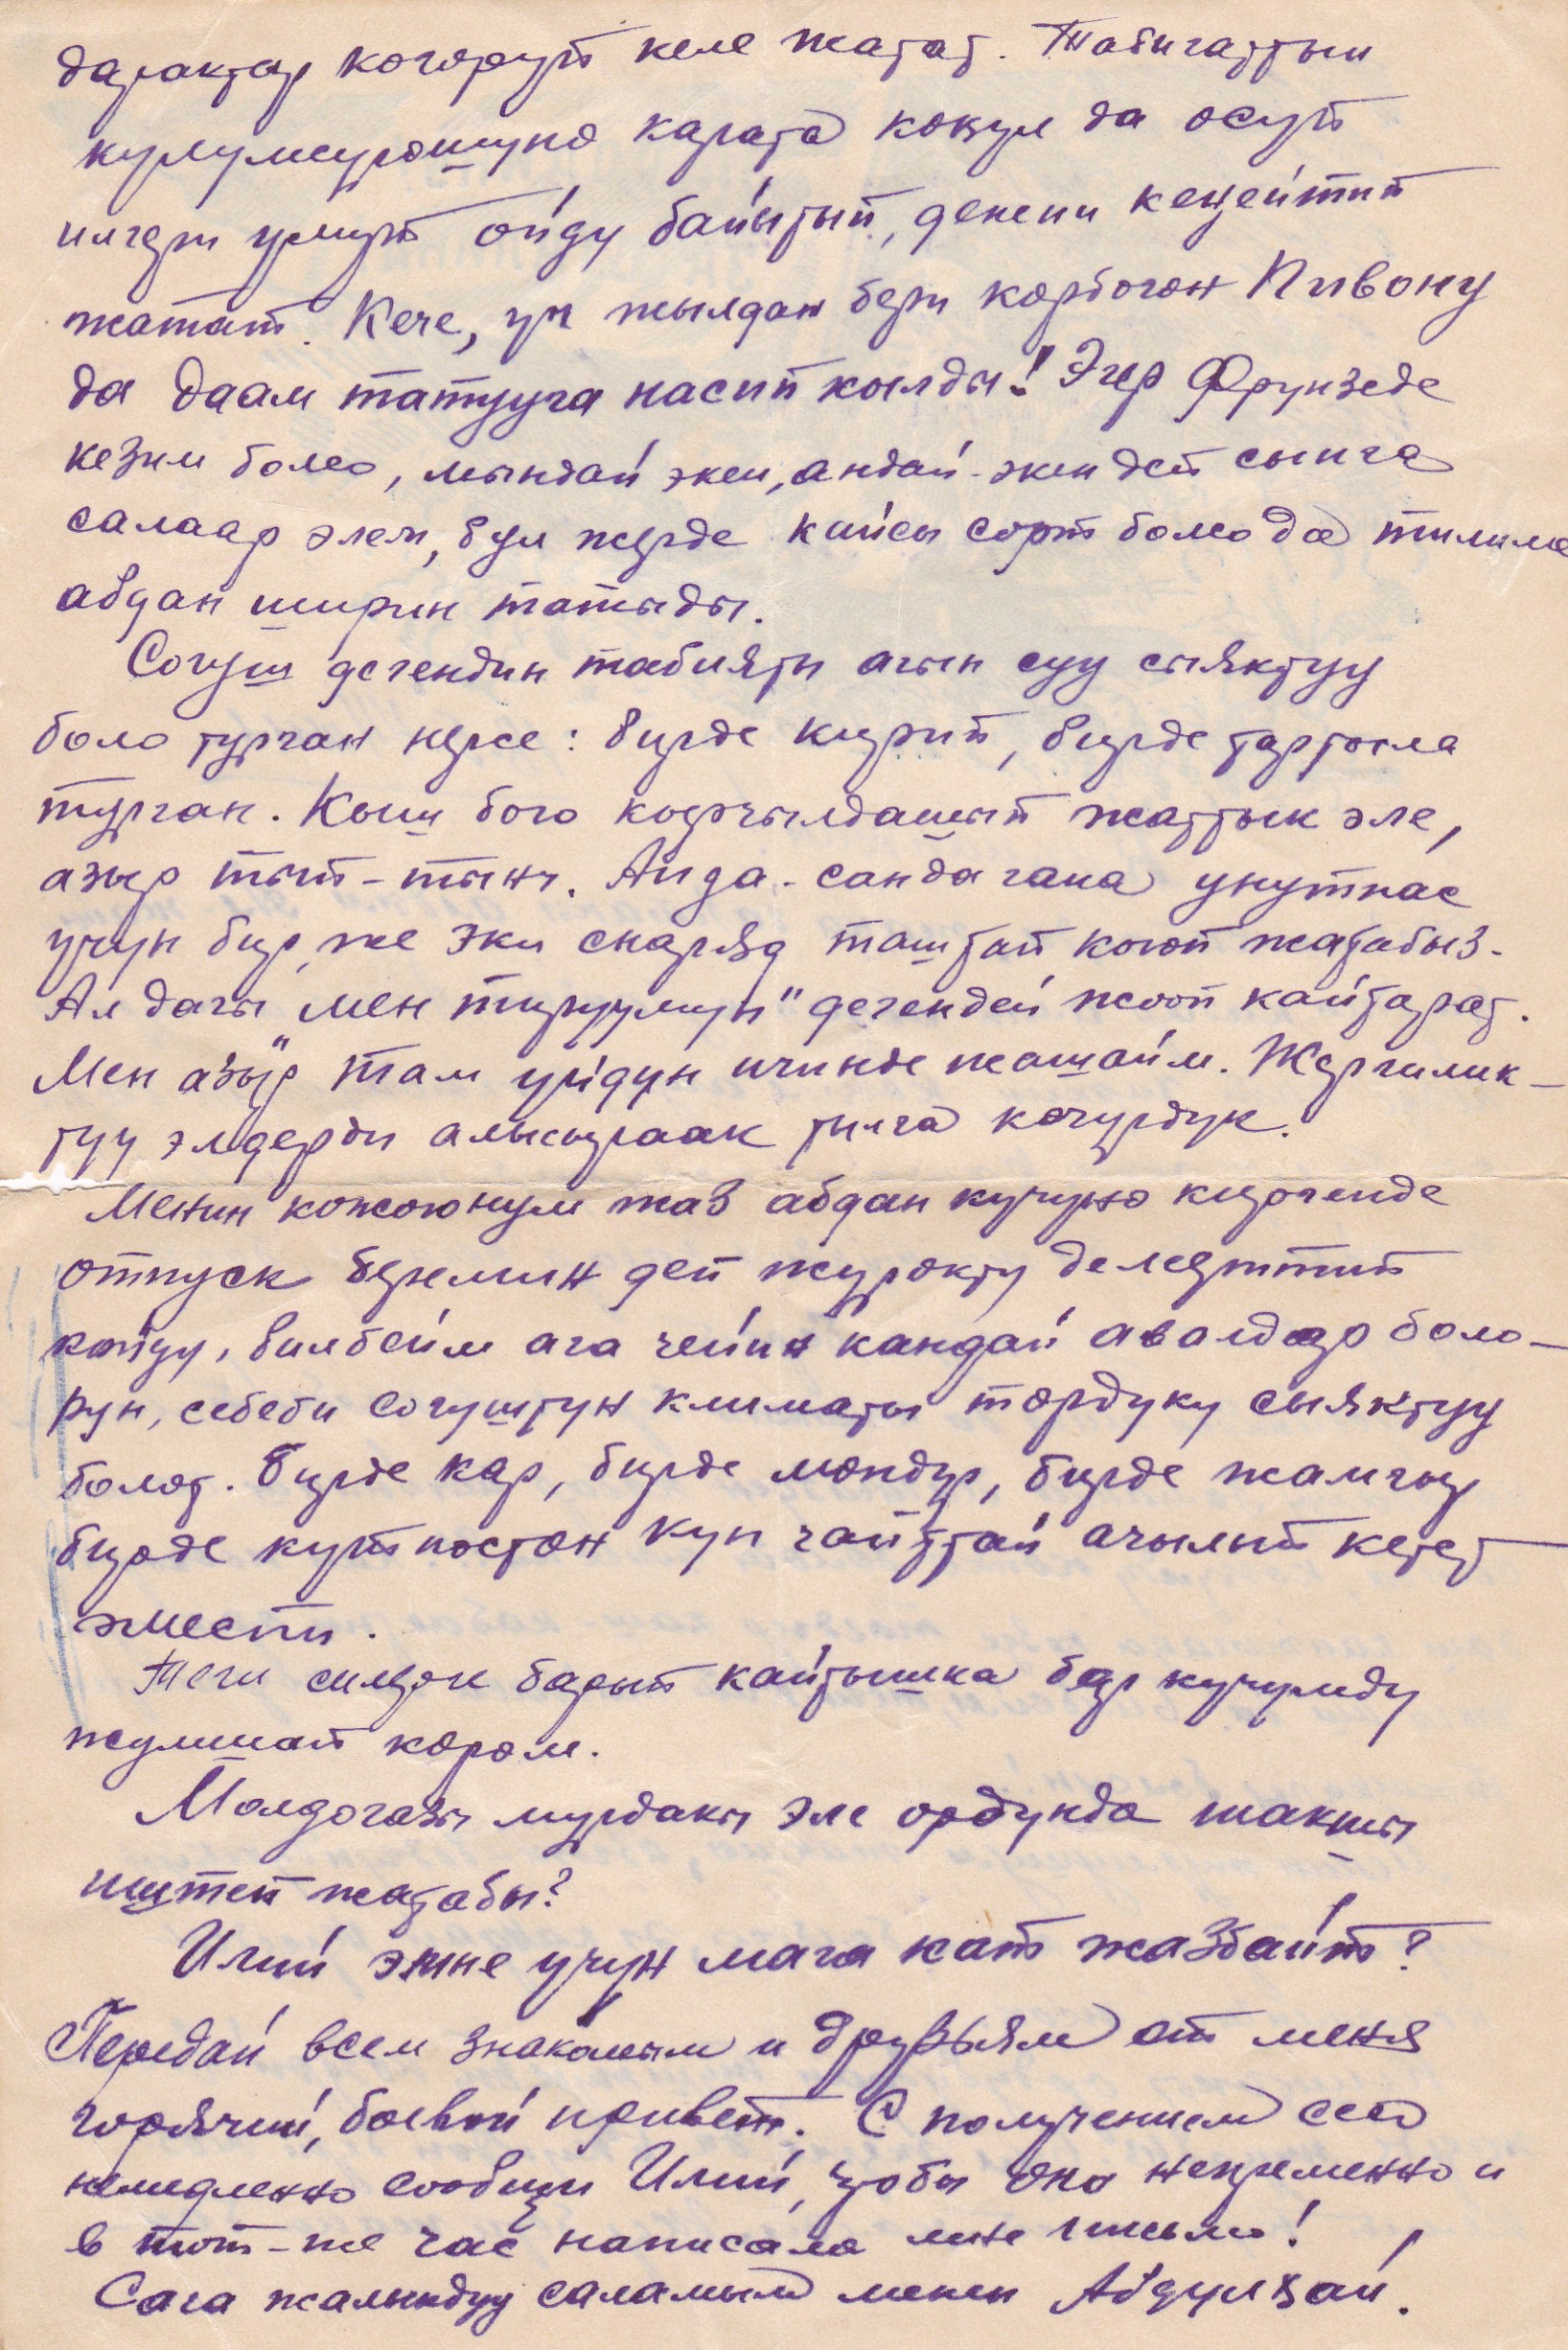 дарактар когоруп келе жатат. Табигаттын
кулумсурошуно карата коңул да осуп
илгери умут ойду байытып, денени кеңейтип
жатат. Кече, уч жылдан бери корбогон Пивону
да даам татууга насип кылды! Эгер Фрунзеде
кезим болсо, мындай экен, андай-экен деп сынга
салаар элем, бул жерде кайсы сорт болсо да тилиме
абдан ширин татыды.
Согуш дегендин табияты агын суу сыяктуу
боло турган нерсе: бирде кирип, бирде тартыла
турган. Кыш бою кырчылдашып жаттык эле,
азыр тып-тынч. Анда-санда гана унутпас
учун бир, же эки снаряд таштап коюп жатабыз.
Ал дагы „мен тируумун" дегендей жооп кайтарат.
Мен азыр там уйдун ичинде жашайм. Жергилик-
туу элдерди алысыраак тылга кочурдук.
Менин кожоюнум жаз абдан кучуно киргенде
отпуск беремин деп журокту делеертип
койду, билбейм ага чейин кандай авалдар боло-
рун, себеби согуштун климаты тордуку сыяктуу
болот. Бирде кар, бирде мондур, бирде жамгыр
бирде кутпостон кун чайттай ачылып кетет
эмеспи.
Теги силерге барып кайтышка бар кучумду
жумшап кором.
Молдогазы мурдакы эле ордунда жакшы
иштеп жатабы?
Илий эмне учун мага кат жазбайт?
Передай всем знакомым и друзьям от меня
горячий, боевой привет. С получением сего
немедленно сообщи Илий, чтобы она непременно и
в тот-же час написала мне письмо!
Сага жалындуу саламым менен Абдулхай.